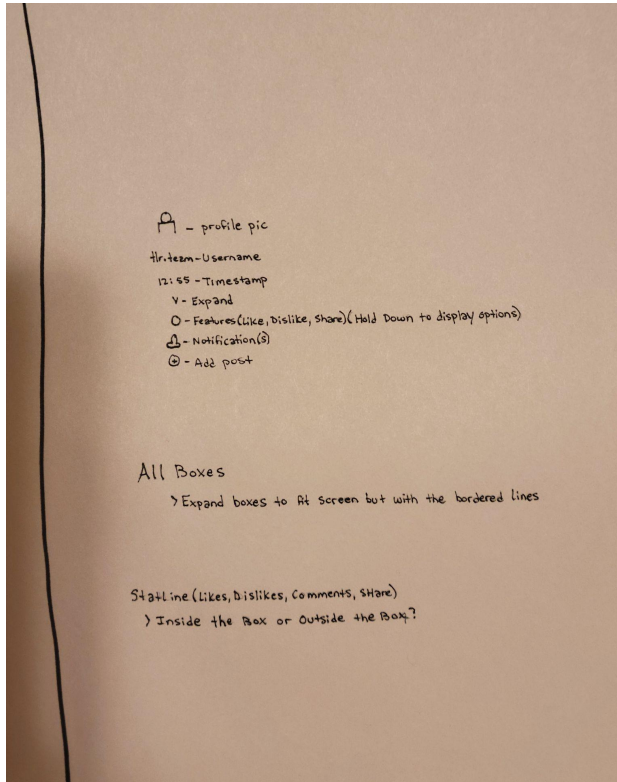 - profile pic
tlr.team - Username
12:55 - Timestamp
V - Expand
O - Features (Like, Dislike, Share) (Hold Down to display options)
- Notification(s)
⊕ - Add post
All Boxes
> Expand boxes to fit screen but with the bordered lines
Statline (Likes, Dislikes, Comments, SHare)
> Inside the Box or Outside the Box?